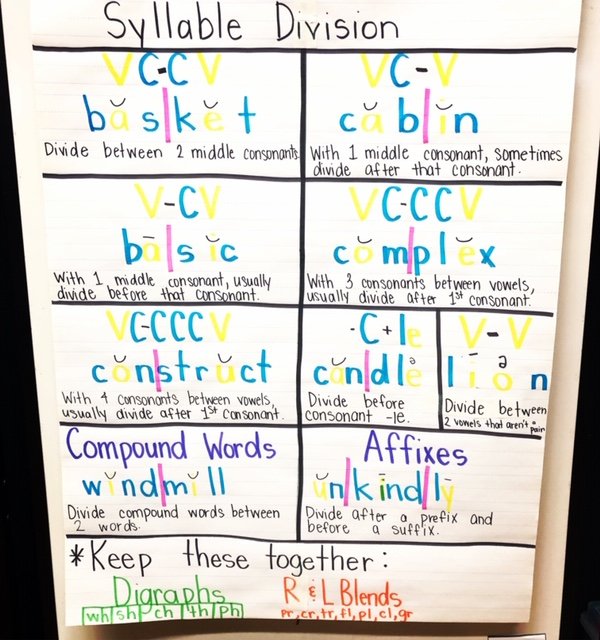 Syllable Division
VC-CV
bas|ket
Divide between 2 middle consonants
VC-V
cab|in
With 1 middle consonant, sometimes
divide after that consonant.
V-CV
ba|sic
With 1 middle consonant, usually
divide before that consonant.
VC-CCV
com|plex
With 3 consonants between vowels,
usually divide after 1st consonant.
VC-CCCV
con|struct
With 4 consonants between vowels,
usually divide after 1st consonant.
-C+le
can|dle
Divide before
consonant -le.
V-V
lion
Divide between
2 vowels that aren't a pair
Compound Words
wind|mill
Divide compound words between
2 words.
Affixes
un|kind|ly
Divide after a prefix and
before a suffix.
*Keep these together:
Digraphs
wh|sh|ch|th|ph|
R & L Blends
pr, cr, tr, fl, pl, cl, gr